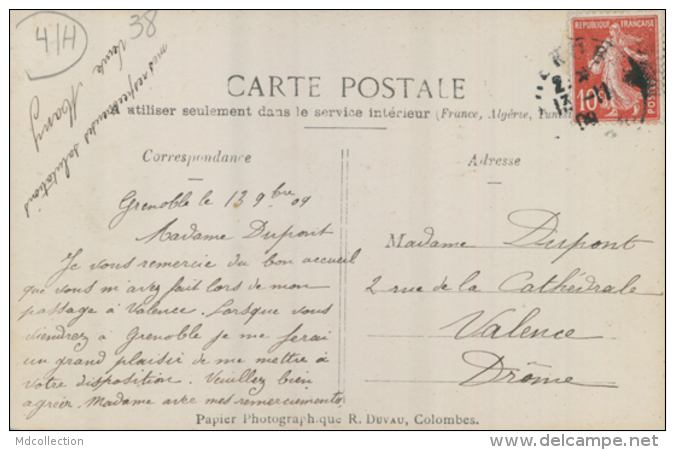 4/H
38
mes respectueuses salutations
CARTE POSTALE
A utiliser seulement dans le service intérieur (France, Algérie, Tunisie
Correspondance
Adresse
Grenoble le 13 9bre 09
Madame Dupont
Je vous remercie du bon accueil
que vous m'avez fait lors de mon
passage à Valence. Lorsque vous
viendrez à Grenoble je me ferai
un grand plaisir de me mettre à
votre disposition. Veuillez bien
agréer Madame avec mes remerciements
Madame Dupont
2 rue de la Cathédrale
Valence
Drôme
REPUBLIQUE FRANÇAISE
10
POSTES
Papier Photographique R. DUVAU, Colombes.
Mdcollection
delcampe.net